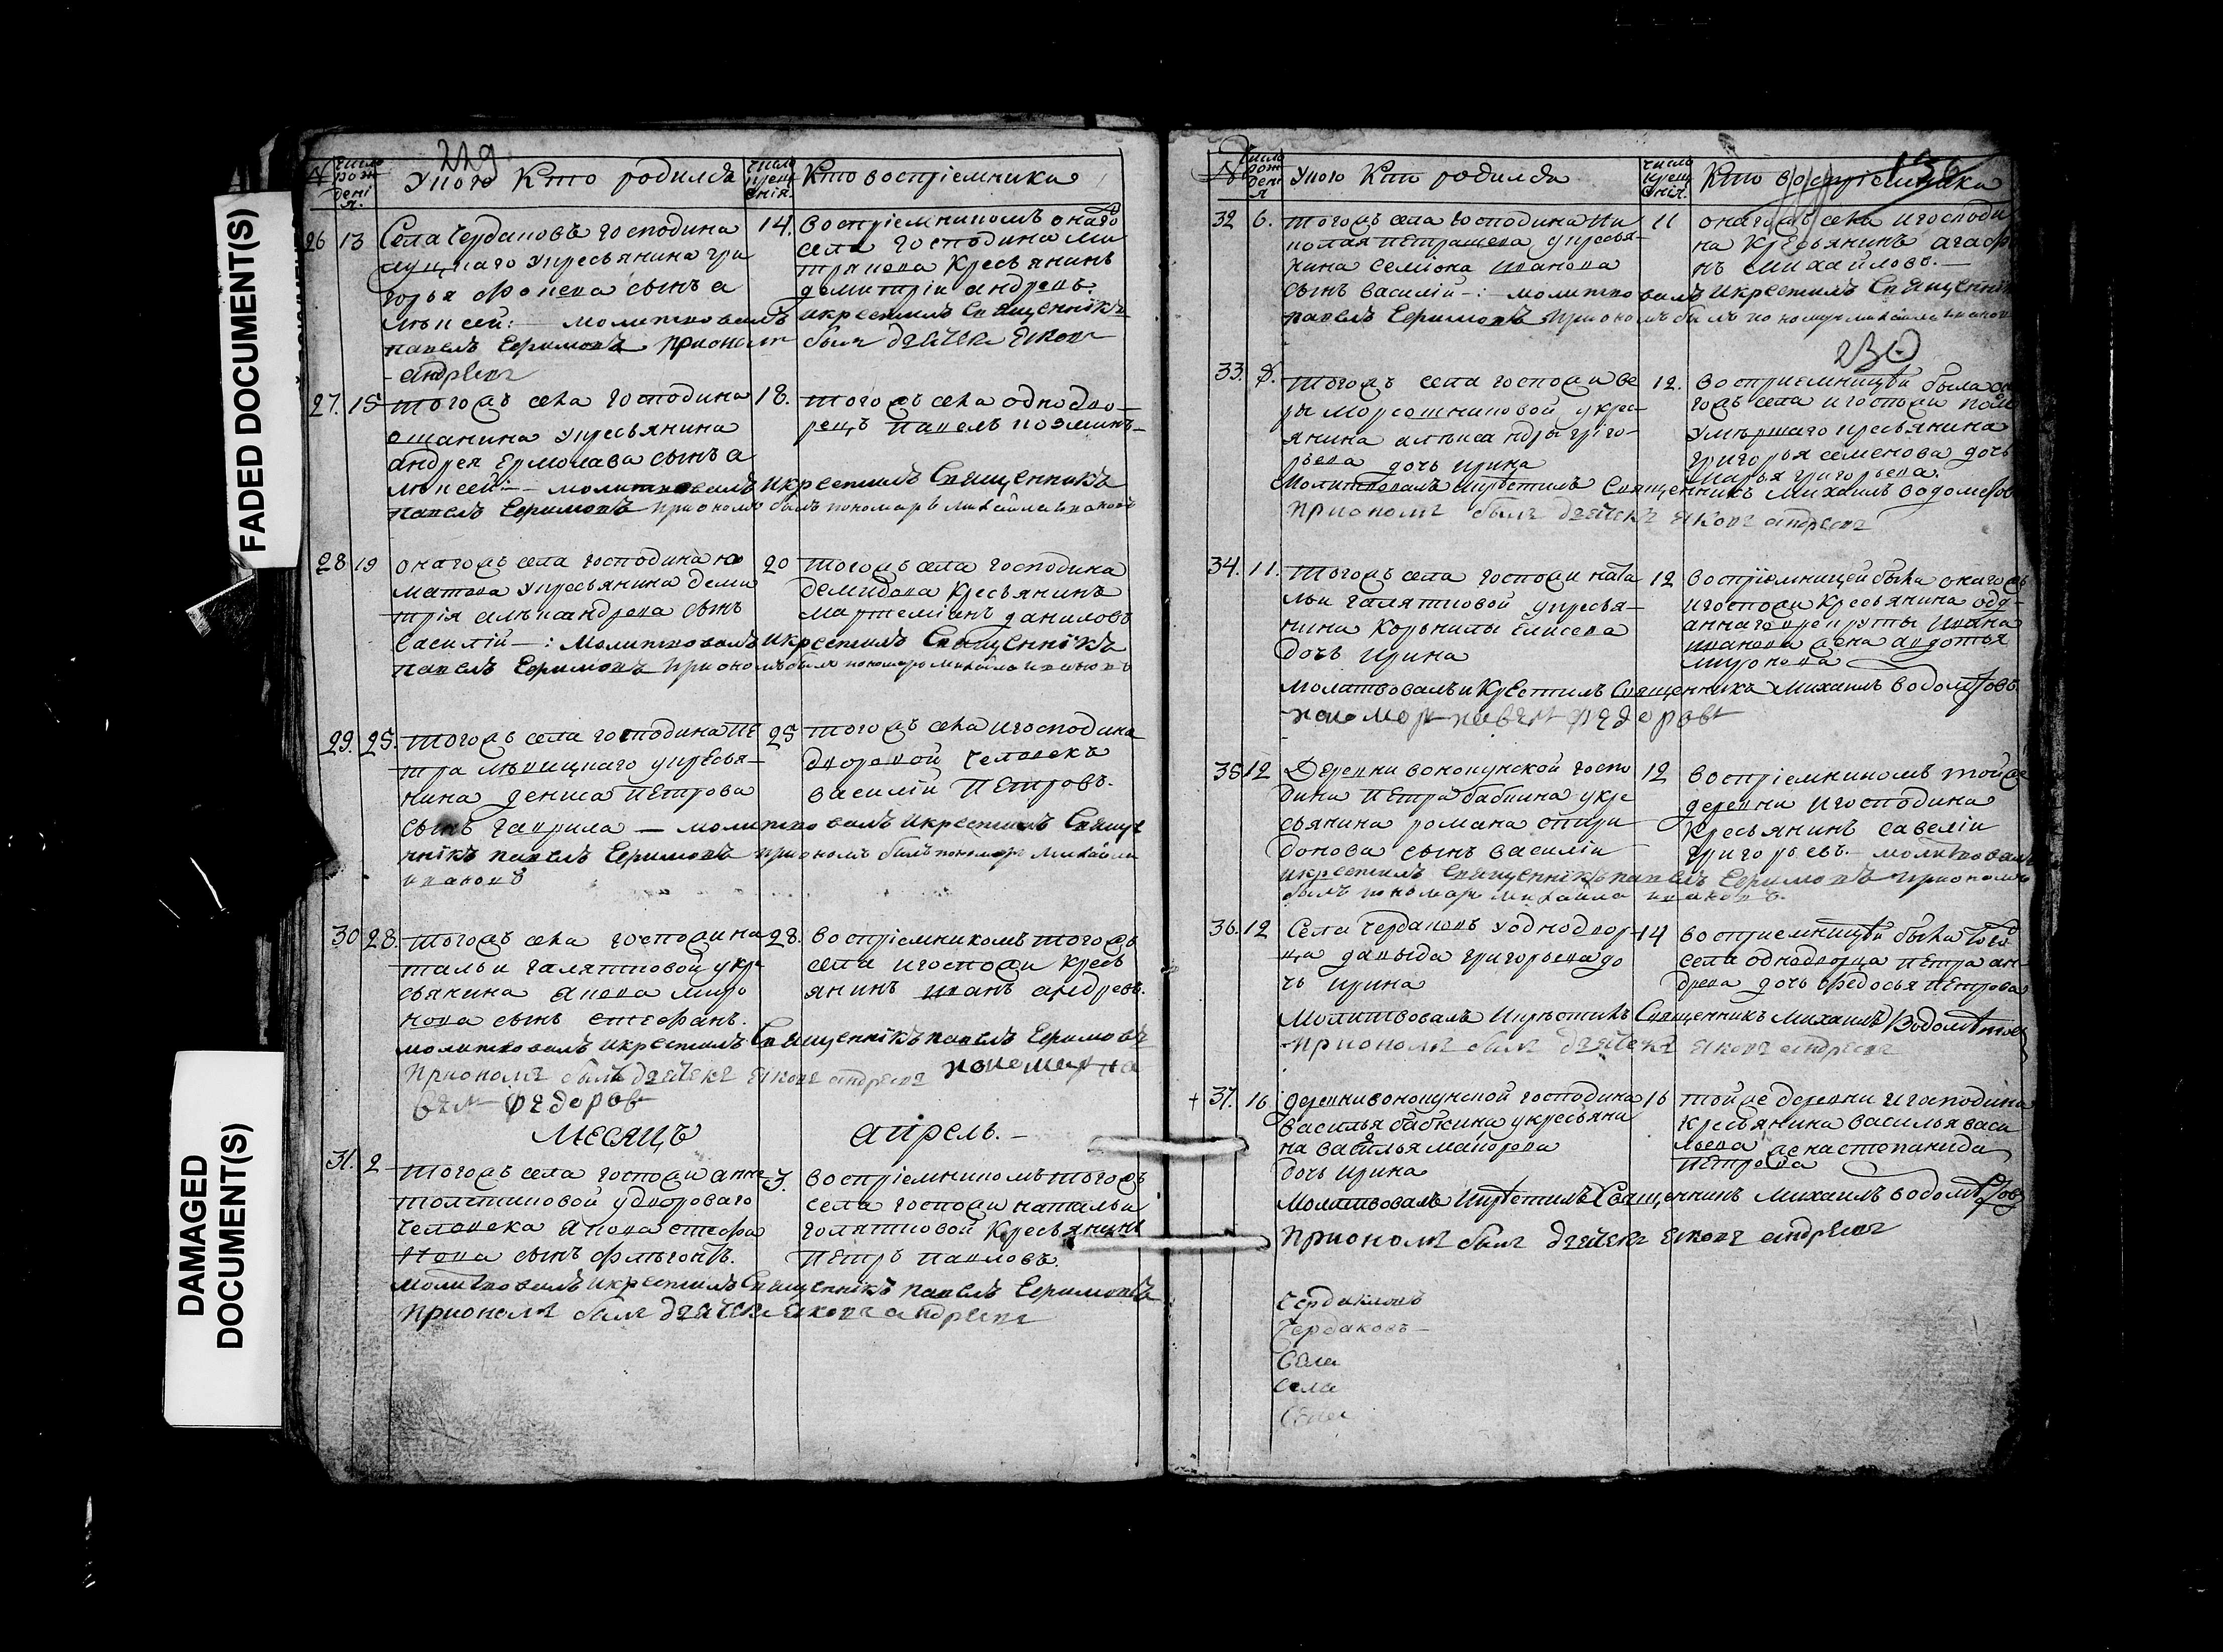 FADED DOCUMENT(S)
DAMAGED
DOCUMENT(S)
229
№
число рождения.
У кого Кто родился
число крещения.
Кто воспріемники
26 13 Села Чердаковъ господина
у кресьянина гри
горья сынъ а
лѣксей: — молитвовалъ
павелъ Ефимовъ приономъ
андреевъ
14. воспріемникомъ онаго
села господина ми
трянова Кресьянинъ
димитріи андреевъ
икрестилъ Священнікъ
былъ дьячекъ яковъ
27. 15 тогожъ села господина
ошанина укресьянина
андрея Ермолаева сынъ а
лѣксей: — молитвовалъ икрестилъ Священникъ
павелъ Ефимовъ приономъ былъ пономарь михайла ивановъ
18. тогожъ села однодво—
рецъ павелъ козминъ—
28 19 оногожъ села господина ю
матова укресьянина дими
трія алѣксандрова сынъ
василій —: молитвовалъ икрестилъ Священнікъ
павелъ Ефимовъ приономъ былъ пономарь михайла ивановъ
20 тогожъ села господина
демидова Кресьянинъ
мартеміянъ даниловъ
29. 25. тогожъ села господина пе
тра укресья—
нина дениса петрова
сынъ гаврила — молитвовалъ икрестилъ Священ
нікъ павелъ Ефимовъ приономъ былъ пономарь михайла
ивановъ
25 тогожъ села игосподина
дворовой человекъ
василій петровъ.
30 28. тогожъ села госпожи на
тальи галятковой укре
сьянина якова миро
нова сынъ стефанъ.
молитвовалъ икрестилъ Священнікъ павелъ Ефимовъ
приономъ былъ дьячекъ яковъ андреевъ пономарь па
велъ федоровъ
28. воспріемникомъ тогожъ
села игоспожи кресь
янинъ иванъ андревъ.
МЕСЯЦЪ апрель. —
31. 2 тогожъ села госпожи анне
толстиковой удвороваго
человека якова стефа
нова сынъ флѣгонтъ.
молитвовалъ икрестилъ Священнікъ павелъ Ефимовъ
приономъ былъ дьячекъ яковъ андреевъ
3. воспріемникомъ тогожъ
села госпожи натальи
голятковой Кресьянинъ
петръ павловъ.
№
число рождения
укого Кто родился
число крещенія.
Кто воспріемника
136
32 6. тогожъ села господина ни
колая петрашева укресья—
нина семіона иванова
сынъ василій —: молитвовалъ икрестилъ Священнікъ
павелъ Ефимовъ приономъ былъ пономарь михайла ивановъ
11 оногожъ села игосподи
на кресьянинъ агаф
нъ михайловъ. —
230
33. 8. тогожъ села госпожи ве
ры морсошниковой укрес—
янина алѣксандры григо—
рьева дочь ирина
молитвовалъ икрестилъ Священникъ михаилъ водолетовъ
приономъ былъ дьячекъ яковъ андреевъ
12. восприемницей была
гожъ села игоспожи
умѣршаго кресьянина
григорья семенова дочь
марья григорьева.
34. 11. тогожъ села госпожи ната
льи галятковой укресья—
нина Корьнилы елисева
дочь ирина
молитвовалъ и Крестилъ Священникъ Михаилъ водолетовъ
пономарь павелъ федоровъ
12 воспріемницей была оногожъ
игоспожи кресьянина отда—
аннаго врекруты ивана
иванова жена авдотья
миронова
35 12 Деревни вонокунской госпо
дина петра бабкина укре
сьянина романа спири
донова сынъ василіи
икрестилъ Священнікъ павелъ Ефимовъ приономъ
былъ пономарь михайла ивановъ.
12 воспріемникомъ тойже
деревни игосподина
кресьянинъ савеліи
григорьевъ. — молитвовалъ
36. 12 Села Чердаковъ уоднодвор—
ца давыда григорьева до
чь ирина
молитвовалъ икрѣстилъ Священникъ Михаилъ Водолетовъ
приономъ былъ дьячекъ яковъ андреевъ
14 восприемницей была того
села однодворца петра ан—
древа дочь федосья петрова
+ 37. 16 деревни вонокунской господина
василья бабкина укресьяни
на василья майорова
дочь ирина
молитвовалъ икрѣстилъ Священникъ михаилъ водолетовъ
приономъ былъ дьячекъ яковъ андреевъ
16 тойже деревни игосподина
кресьянина василья васи
льева жена степанида
петрова
Чердаковъ
Чердаковъ —
Села
села
Села